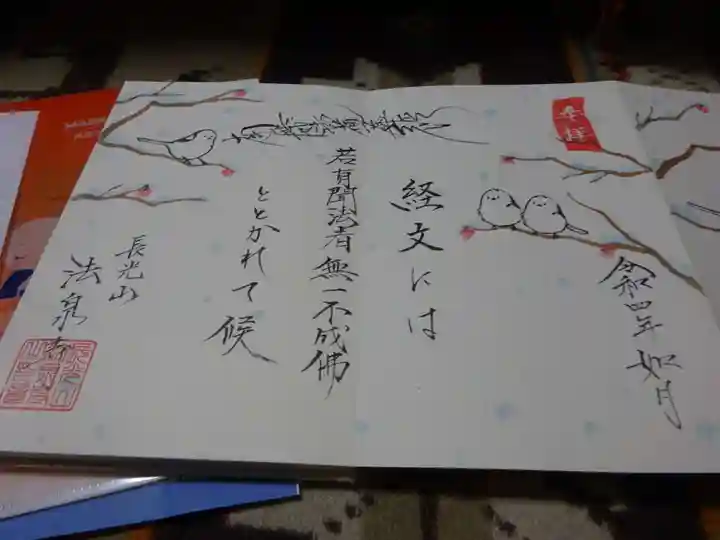 奉拝
令和四年 如月
経文には
若有聞法者無一不成佛
ととかれて候
南無妙法蓮華経
長光山
法泉寺